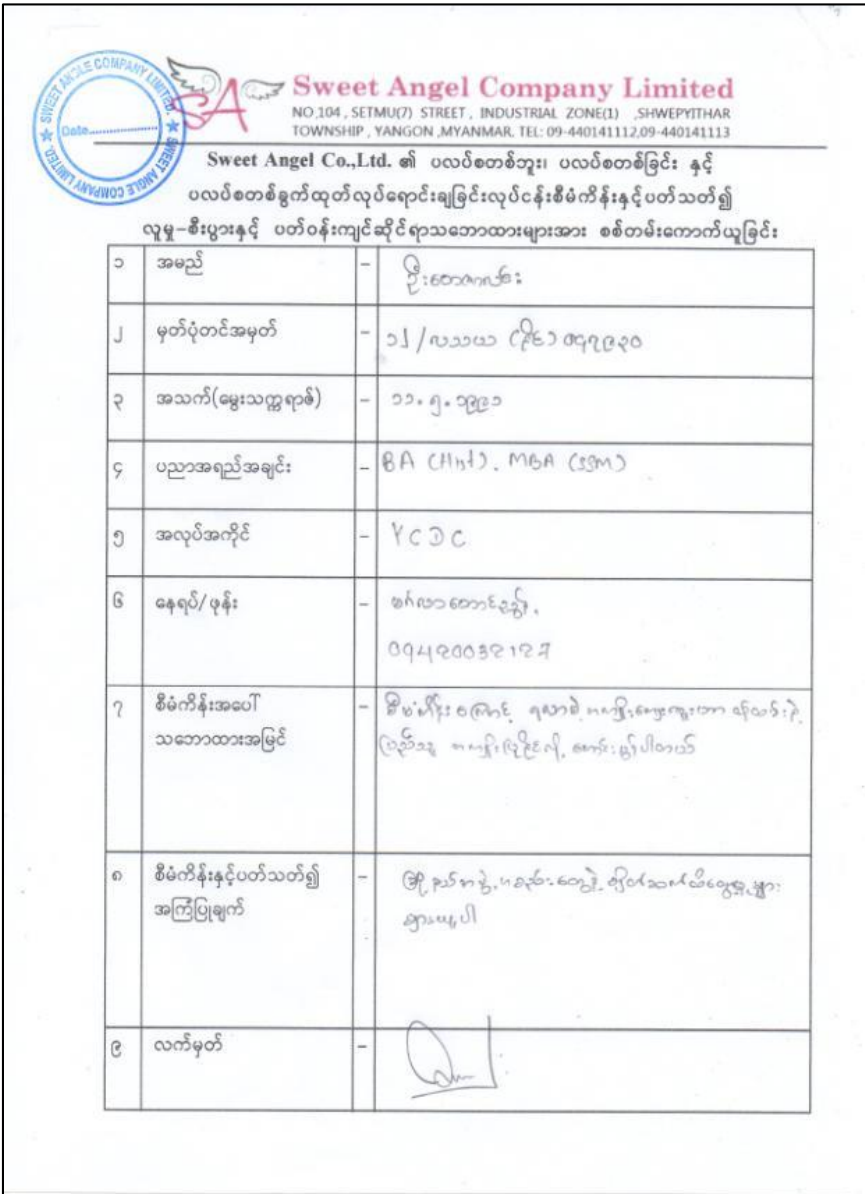 SWEET ANGLE COMPANY LIMITED. ★ SWEET ANGLE COMPANY LIMITED. ★
Date..................
SA
Sweet Angel Company Limited
NO,104 , SETMU(7) STREET , INDUSTRIAL ZONE(1) ,SHWEPYITHAR
TOWNSHIP , YANGON ,MYANMAR. TEL: 09-440141112,09-440141113
Sweet Angel Co.,Ltd. ၏ ပလပ်စတစ်ဘူး၊ ပလပ်စတစ်ခြင်း နှင့်
ပလပ်စတစ်ခွက်ထုတ်လုပ်ရောင်းချခြင်းလုပ်ငန်းစီမံကိန်းနှင့်ပတ်သတ်၍
လူမှု-စီးပွားနှင့် ပတ်ဝန်းကျင်ဆိုင်ရာသဘောထားများအား စစ်တမ်းကောက်ယူခြင်း
၁ အမည် - ဦး
၂ မှတ်ပုံတင်အမှတ် - ၁၂/လသယ (နိုင်) ၀၄၇၉၃၀
၃ အသက်(မွေးသက္ကရာဇ်) - ၁၁.၅.၁၉၉၁
၄ ပညာအရည်အချင်း - BA (Hist), MBA (SSM)
၅ အလုပ်အကိုင် - YCDC
၆ နေရပ်/ဖုန်း - မင်္ဂလာတောင်ညွန့်,
09420032127
၇ စီမံကိန်း‌အပေါ် - စီမံကိန်းကြောင့်
သဘောထားအမြင် ပြည်သူ ကောင်းမွန်ပါတယ်
၈ စီမံကိန်းနှင့်ပတ်သတ်၍ -
အကြံပြုချက်
၉ လက်မှတ် -